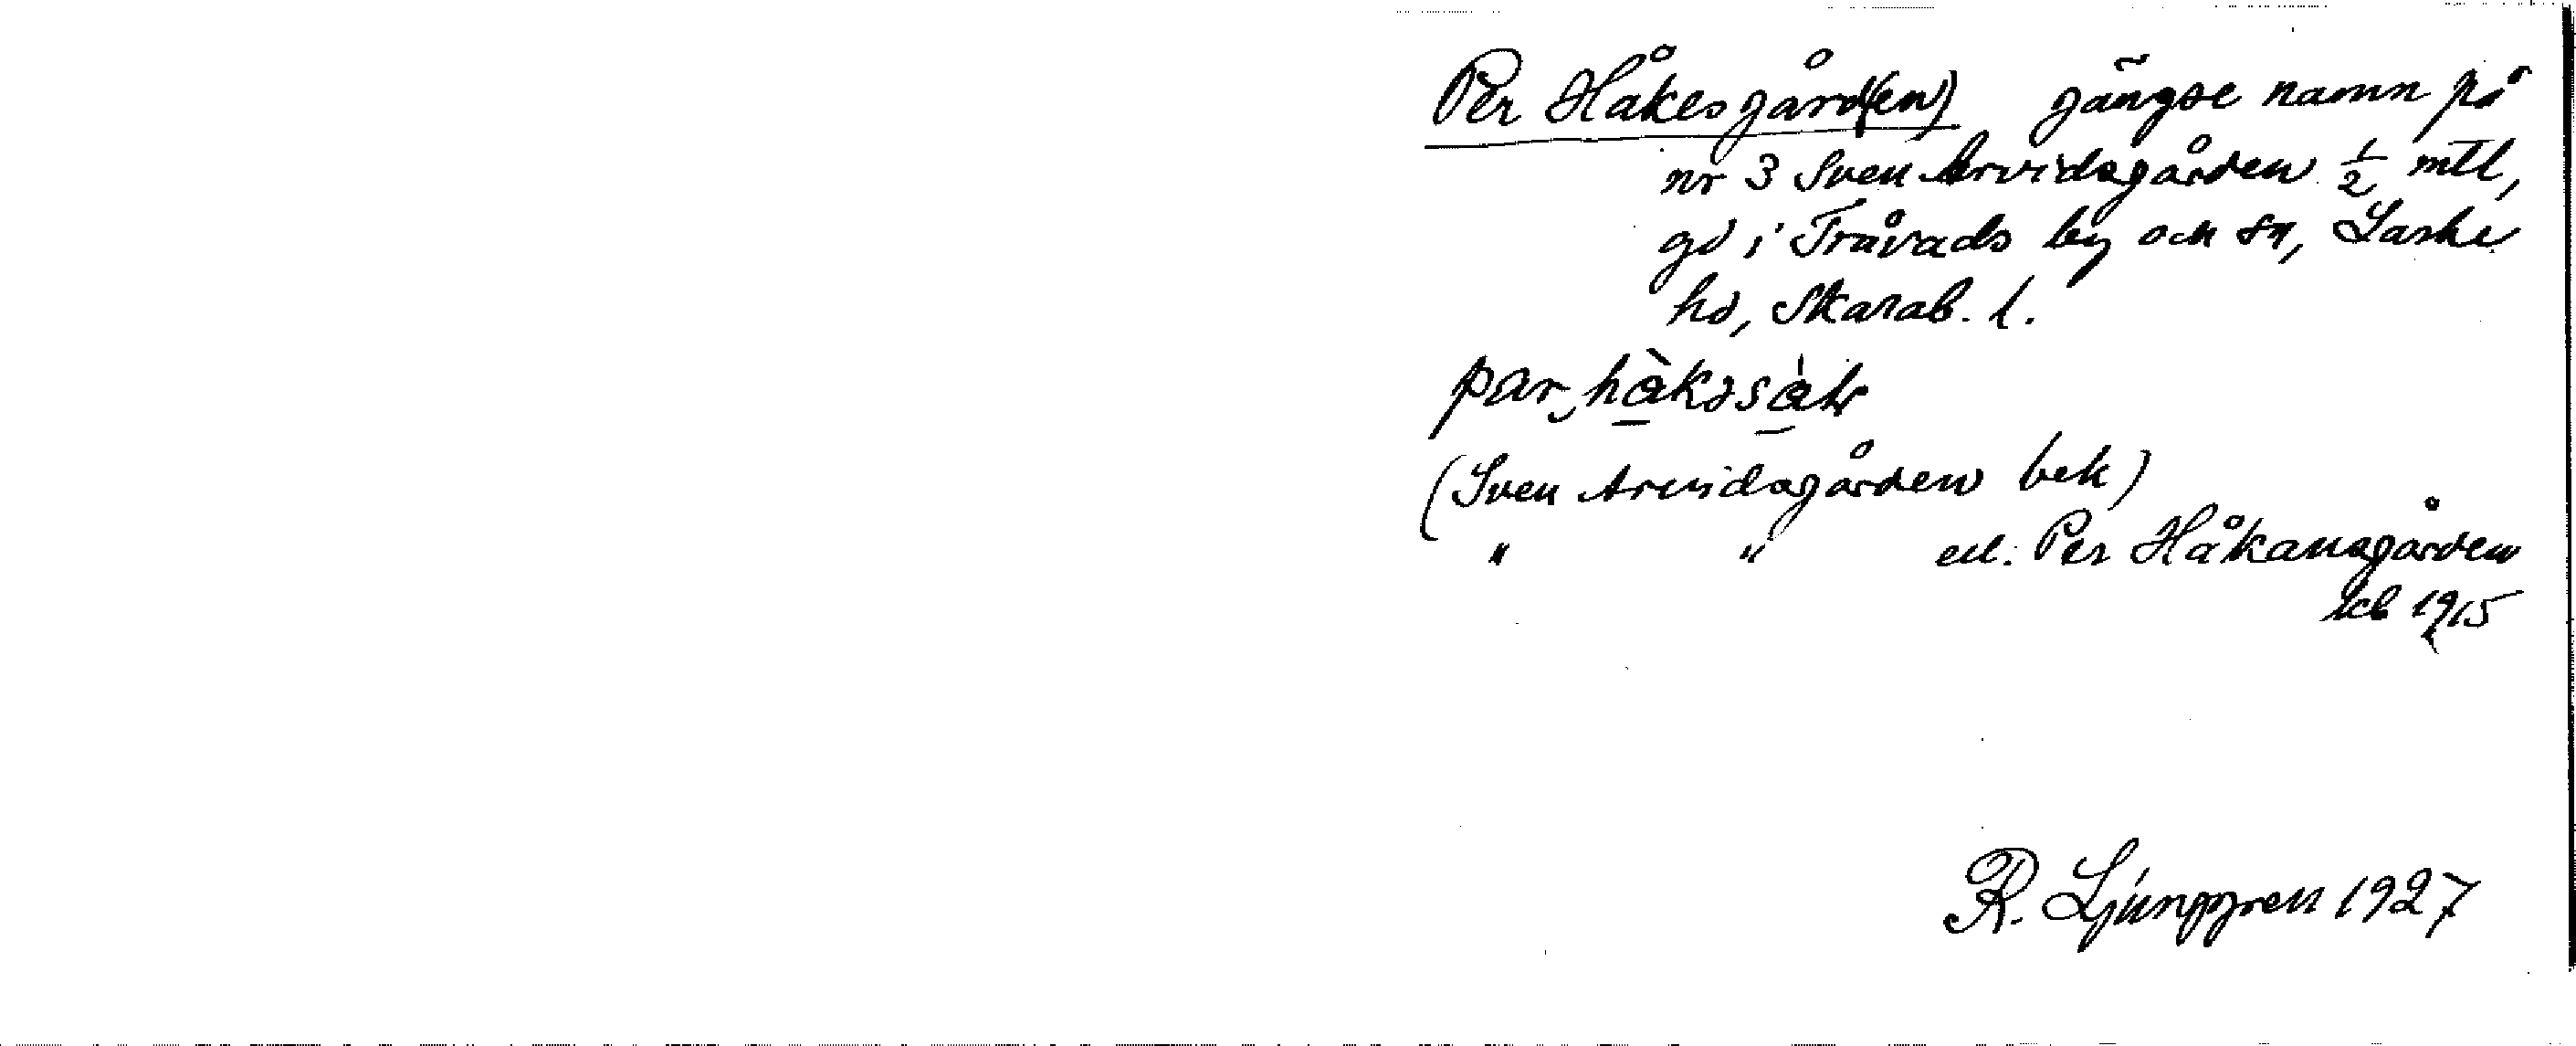 Per Håkesgård(en) gängse namn på
nr 3 Sven Arvidsgården 1/2 mtl,
gd i Tråvads by och sn, Laske
hd, Skarab. l.
(Sven Arvidsgården bek)
" " ell. Per Håkansgården
kb 1915
R. Ljunggren 1927